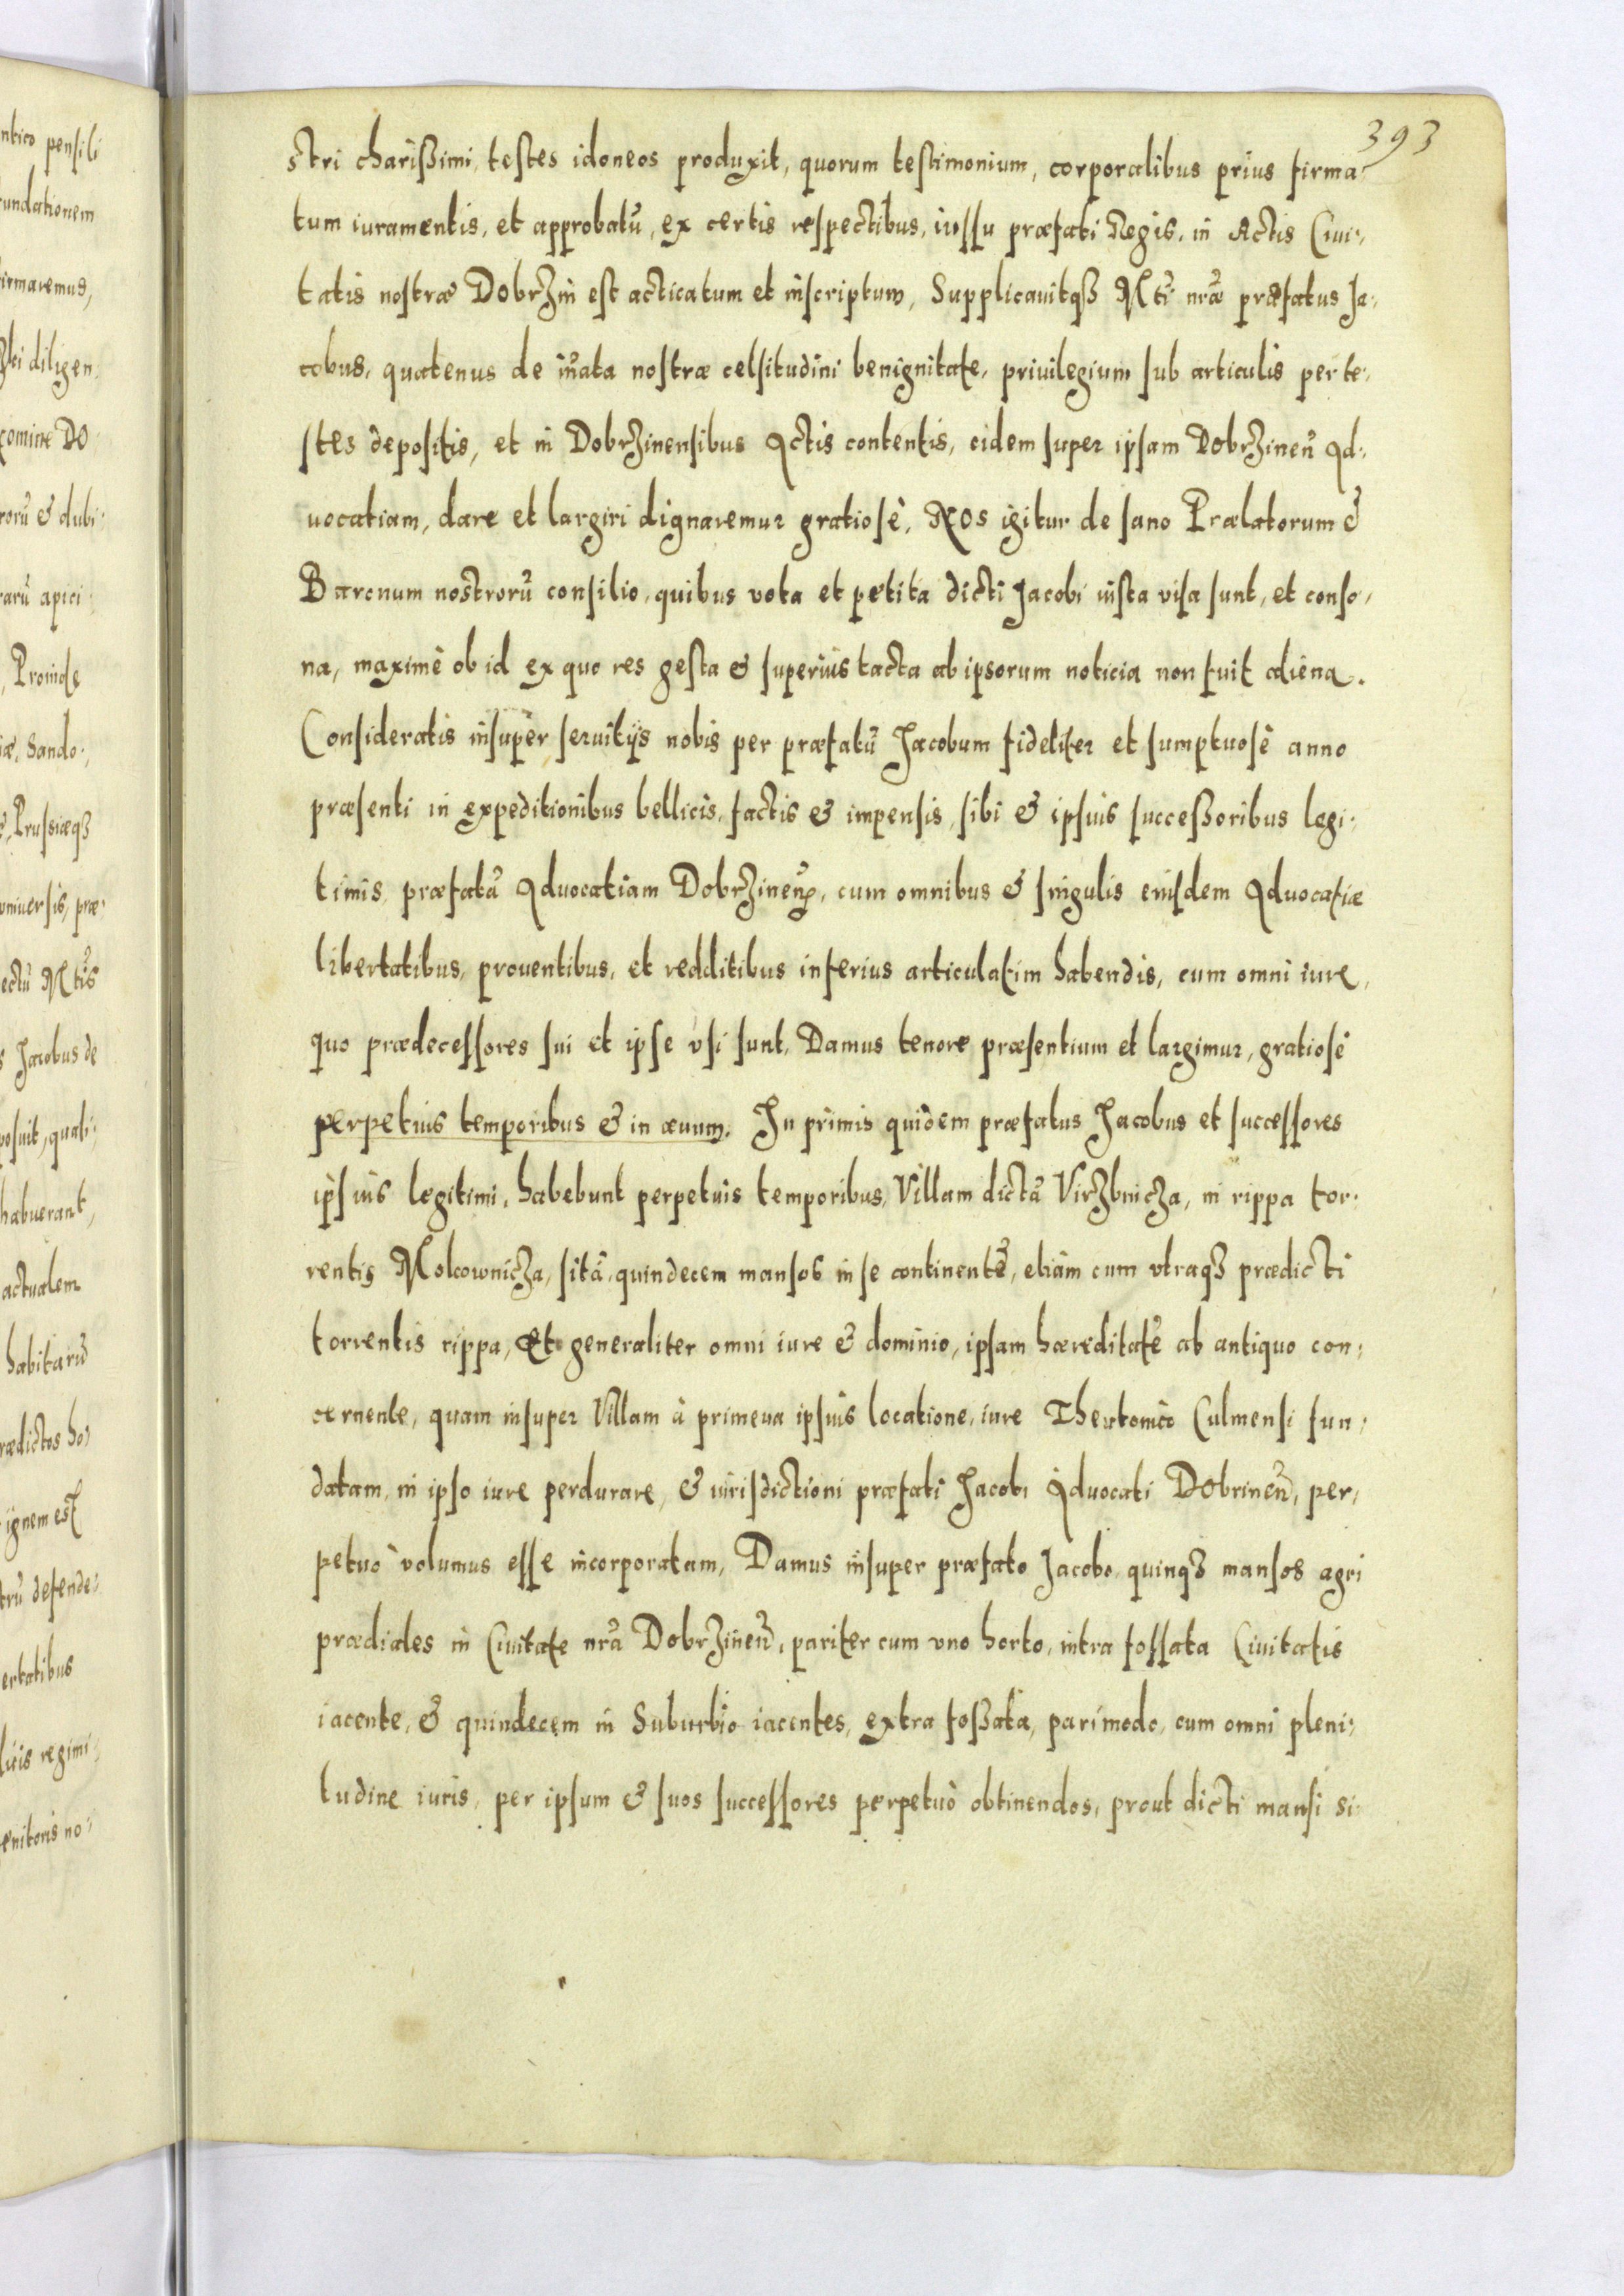 393
ntico pensili
undationem
irmaremus,
ti diligen
comitte Do
rorũ & dubi
rarũ apici
, Proinde
iæ, Sando,
Prussiæqȝ
vniuersis, præ,
ectũ Mtis
s Jacobus de
posuit, quali,
habuerant,
actualem
habitarũ
rædictos ho,
ignem est
trũ defende,
ertatibus
licis regimi
enitoris no,
stri charißimi, testes idoneos produxit, quorum testimonium, corporalibus prius firma,
tum iuramentis, et approbatũ, ex certis respectibus, iussu præfati Regis, in Actis Ciui,
tatis nostræ Dobrzin est acticatum et inscriptum, Supplicauitqȝ Mti nr̃æ præfatus Ja,
cobus, quatenus de iñata nostræ celsitudini benignitate, priuilegium sub articulis per te,
stes depositis, et in Dobrzinensibus Actis contentis, eidem super ipsam Dobrzineñ Ad,
uocatiam, dare et largiri dignaremur gratiosè, Nos igitur de sano Prælatorum &
Baronum nostrorũ consilio, quibus vota et petita dicti Jacobi iusta visa sunt, et conso,
na, maximè ob id ex quo res gesta & superius tacta ab ipsorum noticia non fuit aliena.
Consideratis insuper seruitijs nobis per præfatũ Jacobum fideliter et sumptuosè anno
præsenti in expeditionibus bellicis, factis & impensis, sibi & ipsius successoribus legi,
timis præfatã Aduocatiam Dobrzineñ, cum omnibus & singulis eiusdem Aduocatiæ
libertatibus, prouentibus, et redditibus inferius articulatim habendis, cum omni iure,
quo prædecessores sui et ipse vsi sunt, Damus tenore præsentium et largimur, gratiosè
perpetuis temporibus & in æuum. In primis quidem præfatus Jacobus et successores
ipsius legitimi, habebunt perpetuis temporibus, Villam dictã Virzbnicza, in rippa tor,
rentis Molcownicza, sitã, quindecem mansos in se continentẽ, etiam cum vtraqȝ prædicti
torrentis rippa, Et generaliter omni iure & dominio, ipsam hæreditatẽ ab antiquo con,
cernente, quam insuper Villam à primeua ipsius locatione, iure Theutonico Culmensi fun,
datam, in ipso iure perdurare, & iurisdictioni præfati Jacobi Aduocati Dobrineñ, per,
petuò volumus esse incorporatam, Damus insuper præfato Jacobo quinqȝ mansos agri
prædiales in Ciuitate nr̃a Dobrzineñ, pariter cum vno horto, intra fossata Ciuitatis
iacente, & quindecem in Suburbio iacentes, extra foßata, pari modo, cum omni pleni,
tudine iuris, per ipsum & suos successores perpetuò obtinendos, prout dicti mansi si,